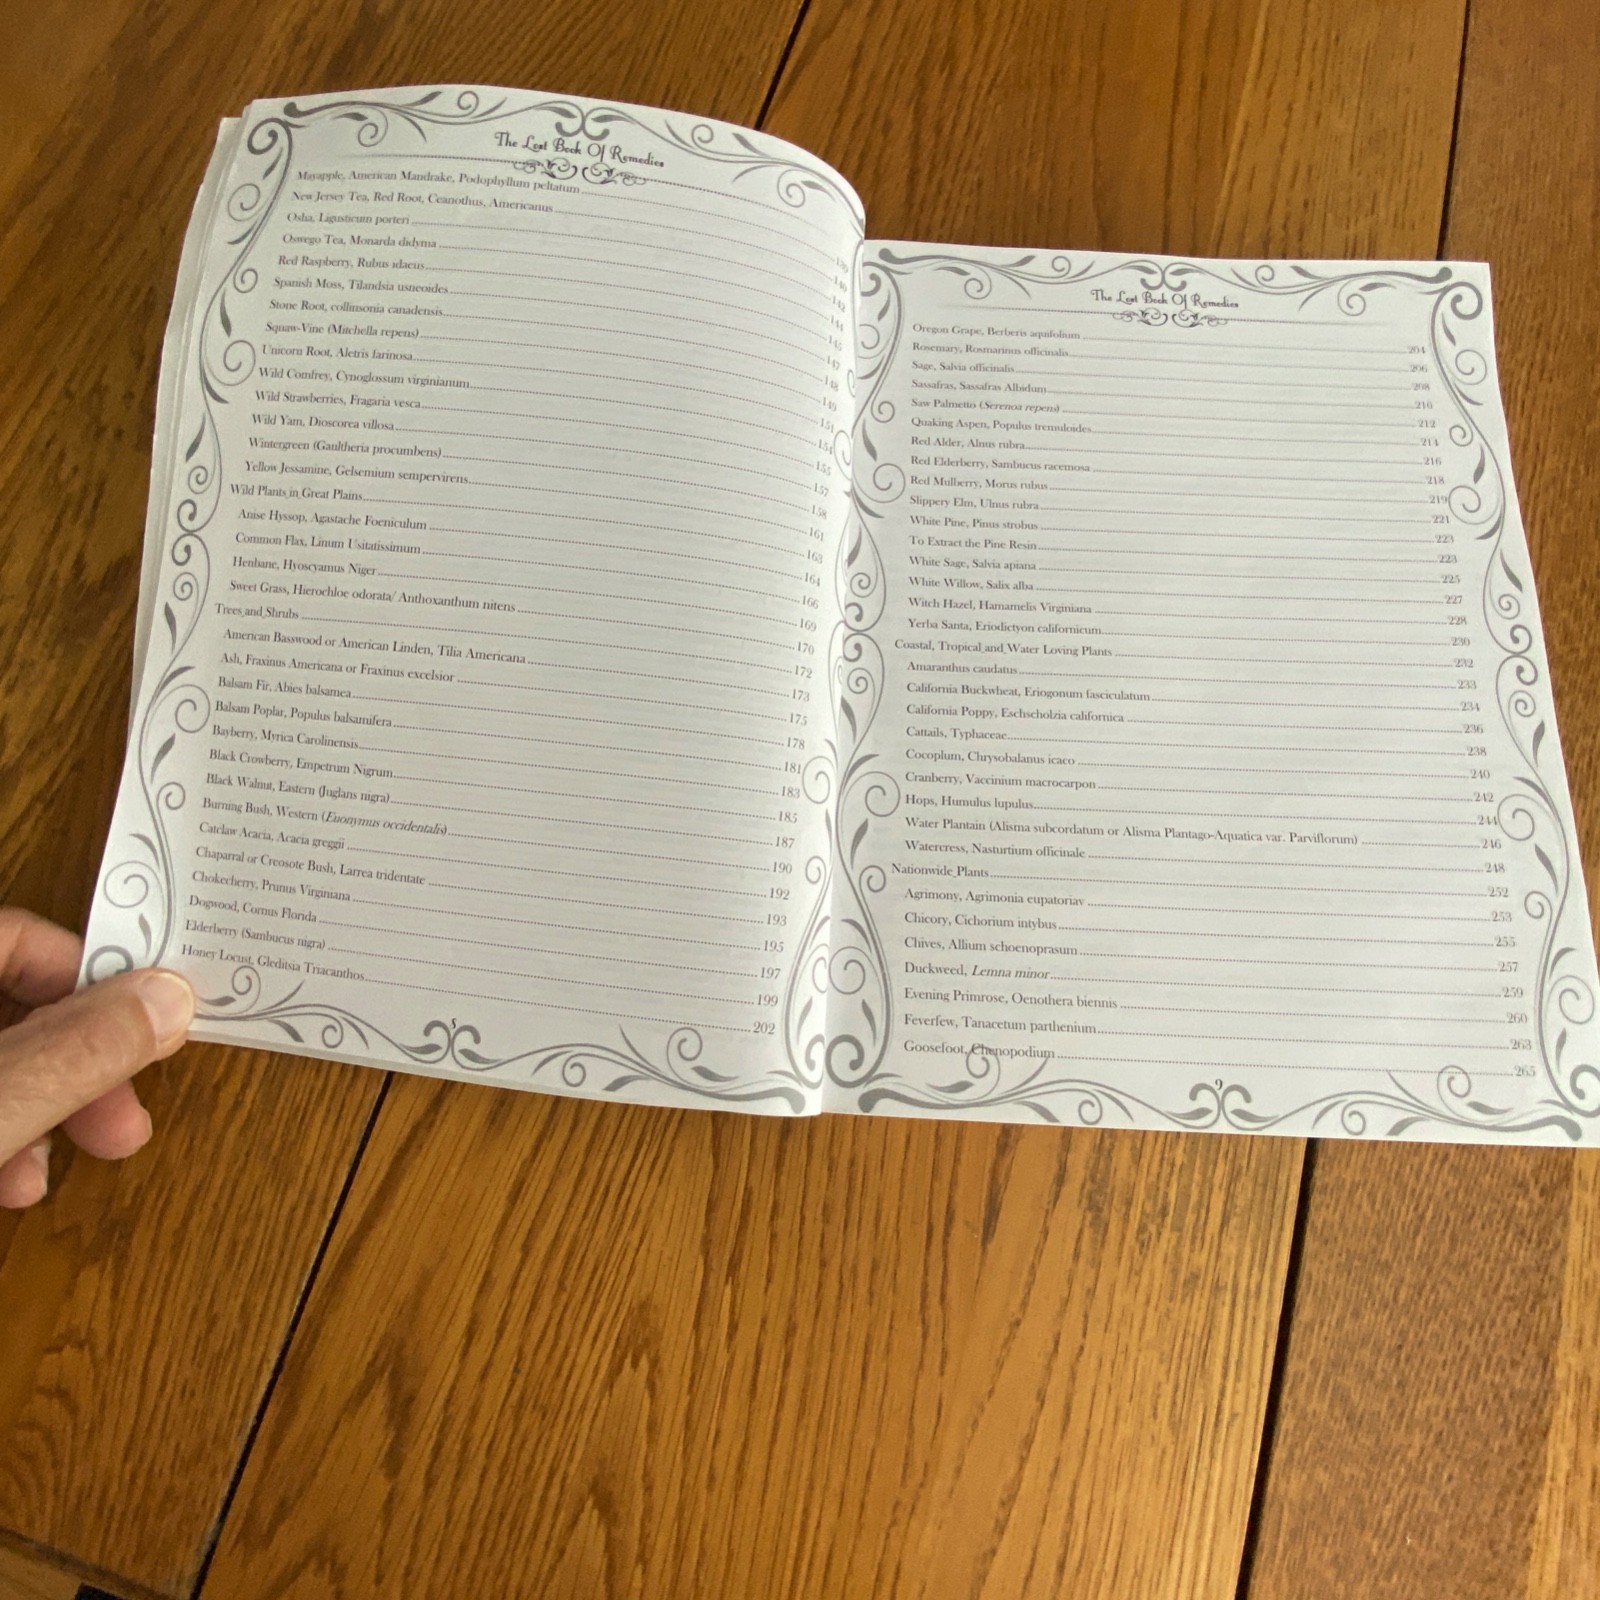 The Lost Book Of Remedies
Mayapple, American Mandrake, Podophyllum peltatum 139
New Jersey Tea, Red Root, Ceanothus, Americanus 140
Osha, Ligusticum porteri 142
Oswego Tea, Monarda didyma 144
Red Raspberry, Rubus idaeus 145
Spanish Moss, Tilandsia usneoides 147
Stone Root, collinsonia canadensis 148
Squaw-Vine (Mitchella repens) 149
Unicorn Root, Aletris farinosa 151
Wild Comfrey, Cynoglossum virginianum 154
Wild Strawberries, Fragaria vesca 155
Wild Yam, Dioscorea villosa 157
Wintergreen (Gaultheria procumbens) 158
Yellow Jessamine, Gelsemium sempervirens 161
Wild Plants in Great Plains 163
Anise Hyssop, Agastache Foeniculum 164
Common Flax, Linum Usitatissimum 166
Henbane, Hyoscyamus Niger 169
Sweet Grass, Hierochloe odorata/ Anthoxanthum nitens 170
Trees and Shrubs 172
American Basswood or American Linden, Tilia Americana 173
Ash, Fraxinus Americana or Fraxinus excelsior 175
Balsam Fir, Abies balsamea 178
Balsam Poplar, Populus balsamifera 181
Bayberry, Myrica Carolinensis 183
Black Crowberry, Empetrum Nigrum 185
Black Walnut, Eastern (Juglans nigra) 187
Burning Bush, Western (Euonymus occidentalis) 190
Catclaw Acacia, Acacia greggii 192
Chaparral or Creosote Bush, Larrea tridentate 193
Chokecherry, Prunus Virginiana 195
Dogwood, Cornus Florida 197
Elderberry (Sambucus nigra) 199
Honey Locust, Gleditsia Triacanthos 202
8
The Lost Book Of Remedies
Oregon Grape, Berberis aquifolium 204
Rosemary, Rosmarinus officinalis 206
Sage, Salvia officinalis 208
Sassafras, Sassafras Albidum 210
Saw Palmetto (Serenoa repens) 212
Quaking Aspen, Populus tremuloides 214
Red Alder, Alnus rubra 216
Red Elderberry, Sambucus racemosa 218
Red Mulberry, Morus rubus 219
Slippery Elm, Ulnus rubra 221
White Pine, Pinus strobus 223
To Extract the Pine Resin 223
White Sage, Salvia apiana 225
White Willow, Salix alba 227
Witch Hazel, Hamamelis Virginiana 228
Yerba Santa, Eriodictyon californicum 230
Coastal, Tropical and Water Loving Plants 232
Amaranthus caudatus 233
California Buckwheat, Eriogonum fasciculatum 234
California Poppy, Eschscholzia californica 236
Cattails, Typhaceae 238
Cocoplum, Chrysobalanus icaco 240
Cranberry, Vaccinium macrocarpon 242
Hops, Humulus lupulus 244
Water Plantain (Alisma subcordatum or Alisma Plantago-Aquatica var. Parviflorum) 246
Watercress, Nasturtium officinale 248
Nationwide Plants 252
Agrimony, Agrimonia eupatoriav 253
Chicory, Cichorium intybus 255
Chives, Allium schoenoprasum 257
Duckweed, Lemna minor 259
Evening Primrose, Oenothera biennis 260
Feverfew, Tanacetum parthenium 263
Goosefoot, Chenopodium 265
9